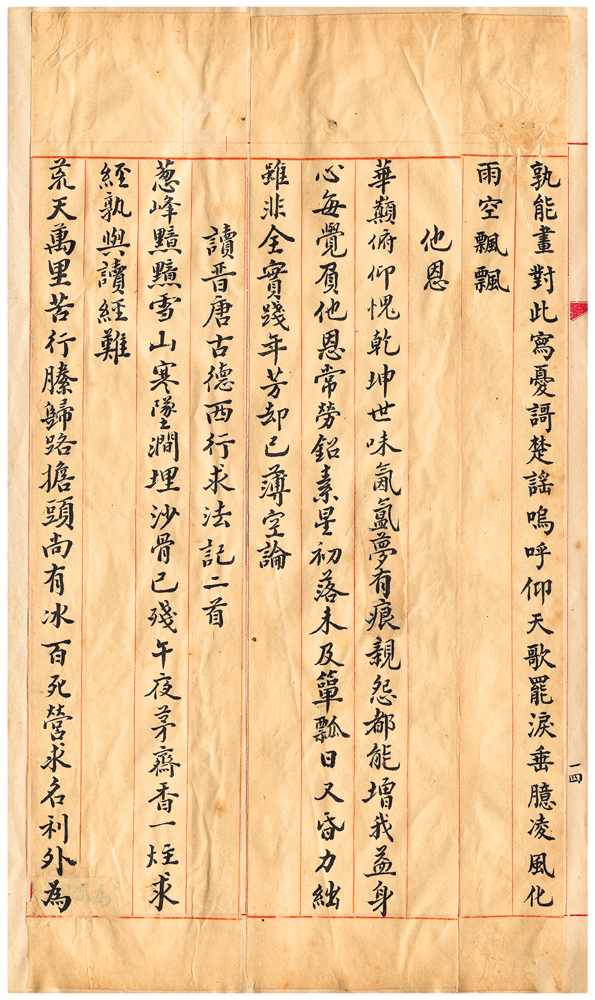 孰能畫對此寫憂謌楚謠嗚呼仰天歌罷淚垂臆凌風化
雨空飄飄
他恩
華顛俯仰愧乾坤世味氤氳夢有痕親怨都能增我益身
心每覺負他恩常勞鉛素星初落未及簞瓢日又昏力絀
雖非全實踐年芳却已薄空論
讀晉唐古德西行求法記二首
葱峰黯黯雪山寒墜澗埋沙骨已殘午夜茅齋香一炷求
經孰與讀經難
荒天萬里苦行縢歸路擔頭尚有冰百死營求名利外為
一四